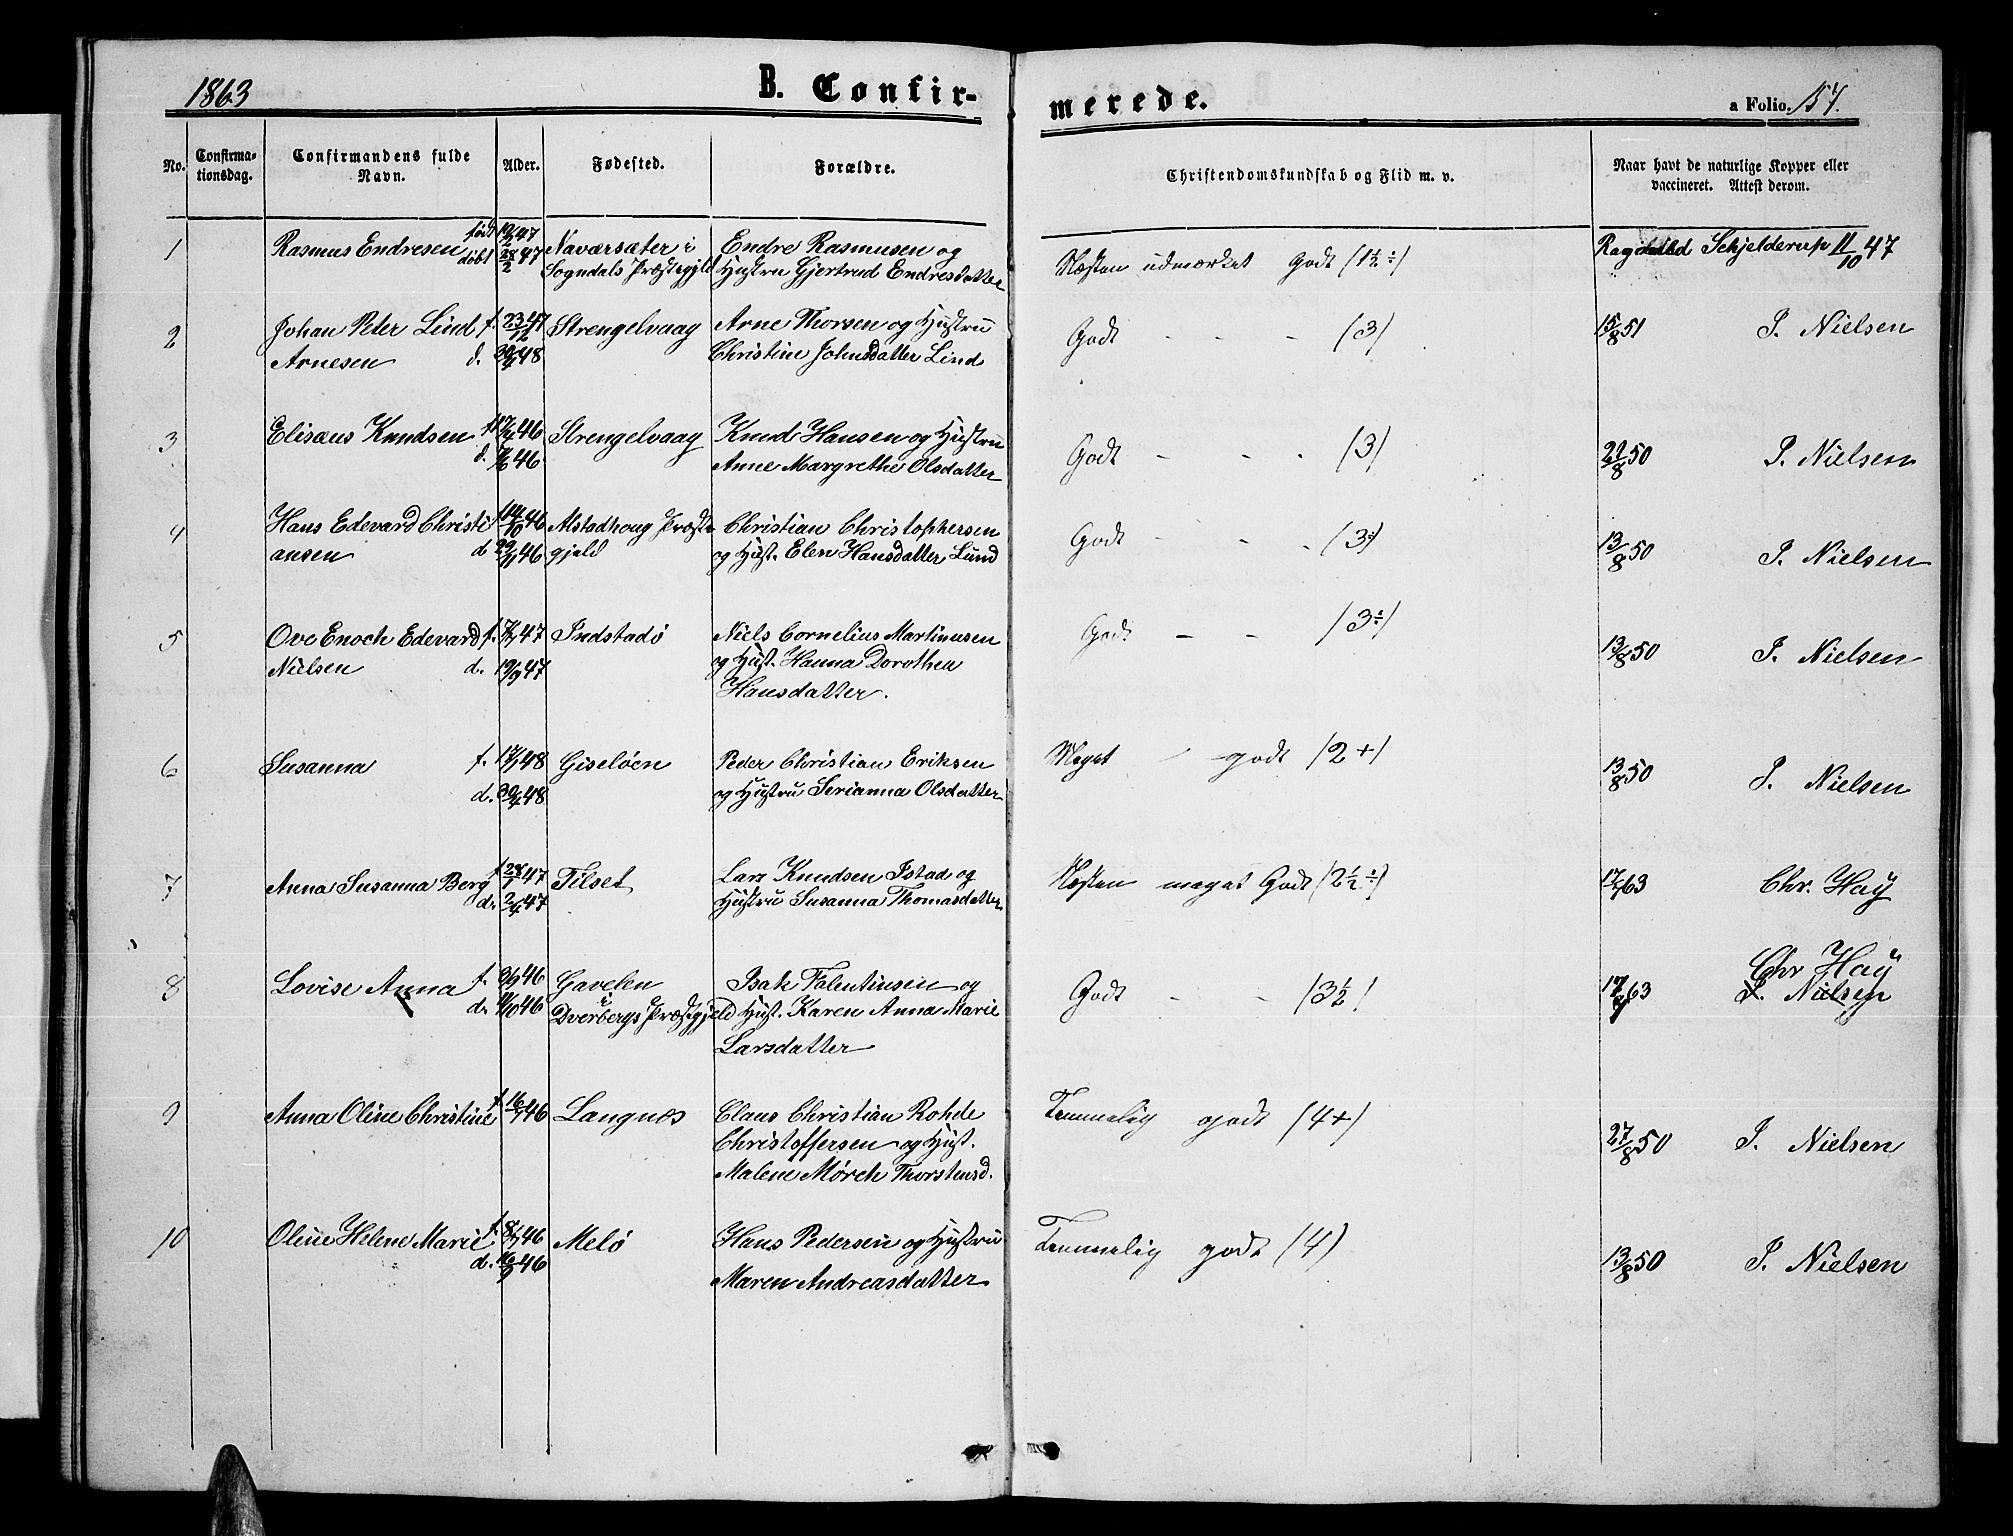 1863
B. Confir-
merede.
a Folio. 157.
No.
Confirma-
tionsdag.
Confirmandens fulde
Navn.
Alder.
Fødested.
Forældre.
Christendomskundskab og Flid m. v.
Naar havt de naturlige Kopper eller
vaccineret. Attest derom.
1 Rasmus Endresen født 19/2 47 Naværsæter i Endre Rasmusen og
døbt 28/2 47 Sogndals Præstegjeld Hustru Gjertrud Endresdatter
Næsten udmærket Godt (1½ ÷)
Schjelderup 11/10 47
2 Johan Peter Lind f. 23/12 47 Strengelvaag Arne Thorsen og Hustru
Arnesen d. 30/4 48 Christine Johnsdatter Lind
Godt - - - (3)
15/8 51 P. Nielsen
3 Elisæus Knudsen f. 46 Strengelvaag Knud Hansen og Hustru
d. 46 Anne Margrethe Olsdatter
Godt - - - (3)
22/8 50 P. Nielsen
4 Hans Edevard Christi f. 14/10 46 Alstadhoug Præste Christian Christophersen
ansen d. 22/11 46 gjeld og Hust. Elen Hansdatter Lund
Godt - - - (3÷)
13/8 50 P. Nielsen
5 Ove Enoch Edevard f. 47 Indstadø Niels Cornelius Martinusen
Nielsen d. 19/9 47 og Hust. Hanna Dorothea
Hansdatter.
Godt - - (3÷)
13/8 50 P. Nielsen
6 Susanna f. 17/1 48 Giseløen Peder Christian Eriksen
d. 30/4 48 og Hustru Serianna Olsdatter
Meget - godt (2+)
13/8 50 P. Nielsen
7 Anna Susanna Berg f. 28/1 47 Tilset Lars Knudsen Istad og
d. 2/4 47 Hustru Susanna Thomasdatter
Næsten meget Godt (2½ ÷)
17/7 63 Chr. Hay
8 Lovise Anna f. 3/9 46 Gavelen Isak Falentinsen og
d. 4/10 46 i
Dverbergs Præstegjeld Hust. Karen Anna Marie
Larsdatter
Godt - - (3½)
17/7 63 Chr Hay
P. Nielsen
9 Anna Oline Christine f. 16/1 46 Langnæs Claus Christian Rohde
Christoffersen og Hust.
Malene Mörch Thorstensd.
Temmelig godt (4+)
27/8 50 P. Nielsen
10 Oline Helene Marie f. 8/7 46 Melø Hans Pedersen og Hustru
d. 46 Maren Andreasdatter
Temmelig godt (4)
13/8 50 P. Nielsen